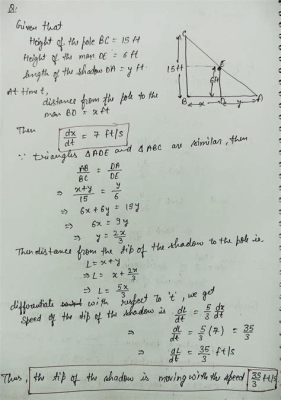 Q:
Given that
Height of the pole BC = 15 ft
Height of the man DE = 6 ft
length of the shadow DA = y ft
At time t,
distance from the pole to the
man BD = x ft
C
E
15 ft
6 ft
B x D y A
Then
dx/dt = 7 ft/s
∵ triangles △ADE and △ABC are similar, then
AB/BC = DA/DE
⇒ (x+y)/15 = y/6
⇒ 6x + 6y = 15y
⇒ 6x = 9y
⇒ y = 2x/3
Then distance from the tip of the shadow to the pole is
L = x + y
⇒ L = x + 2x/3
⇒ L = 5x/3
differentiate with respect to 't', we get
speed of the tip of the shadow is dL/dt = 5/3 dx/dt
⇒ dL/dt = 5/3 (7) = 35/3
⇒ dL/dt = 35/3 ft/s
Thus, the tip of the shadow is moving with the speed 35/3 ft/s